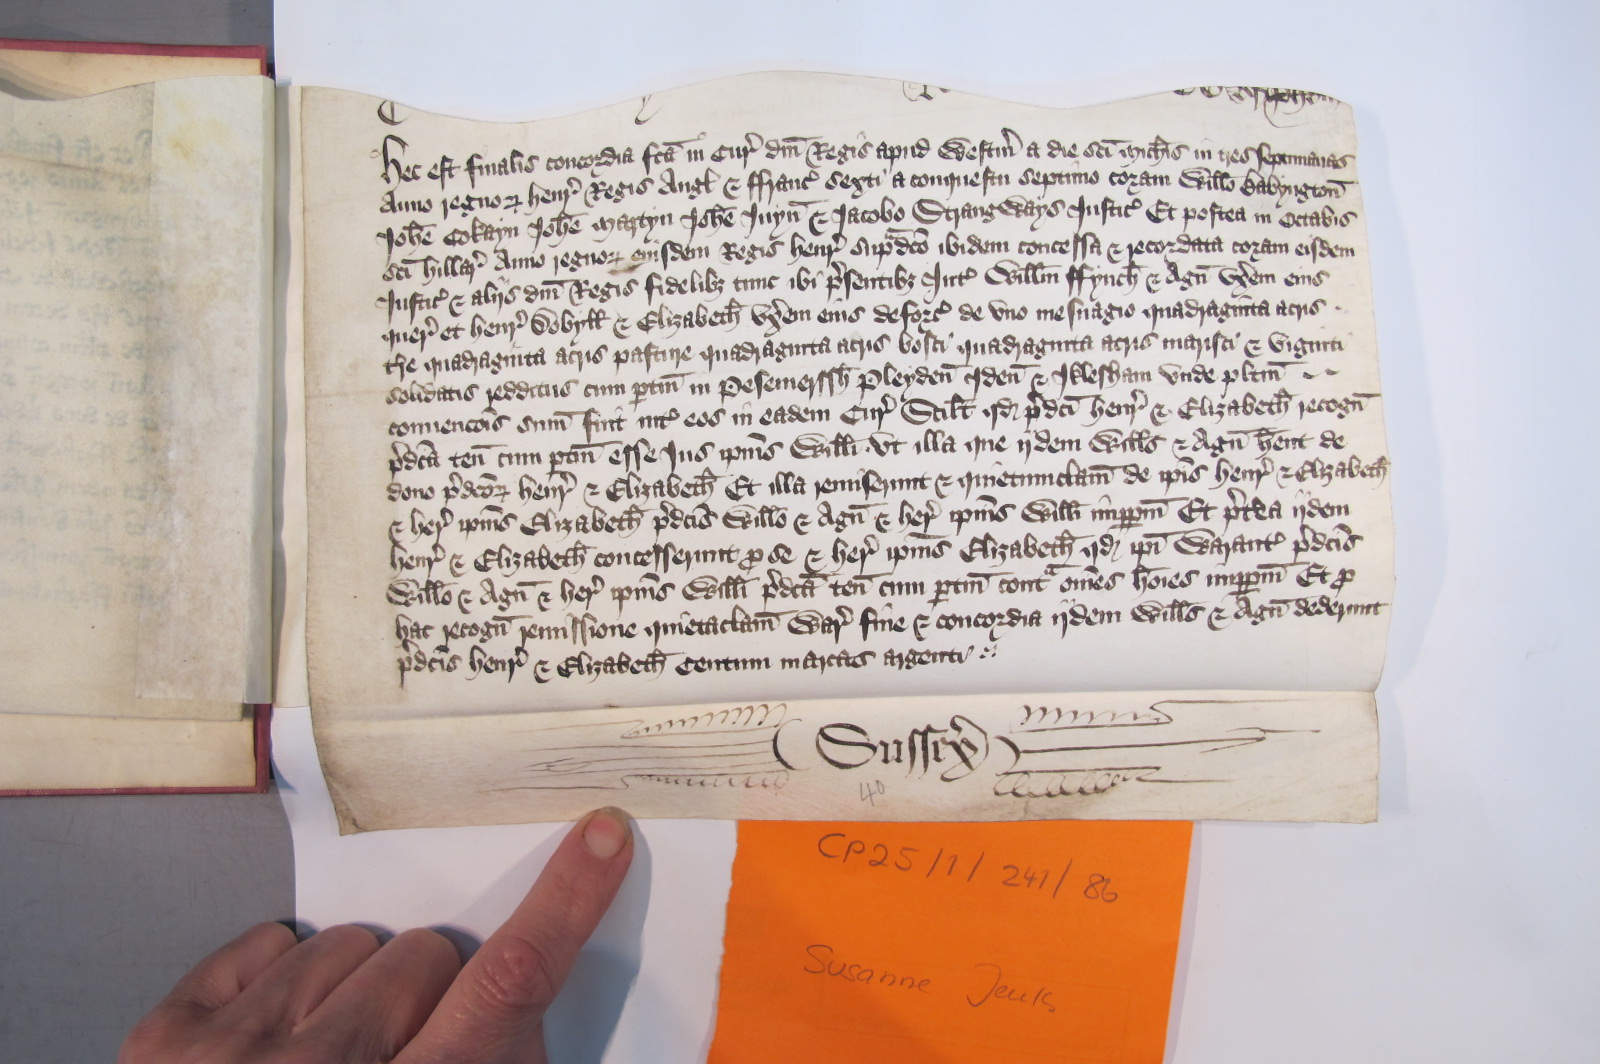 Hec est finalis concordia fcā in Cur' dn̄i Regis apud Westm̄ a die sc̄i Mich̄is in tres septimanas
Anno regnoꝝ Henr' Regis Angl' & ffranc' sexti a conquestu septimo coram Will̄o Babyngton̄
Joh̄e Cokayn Joh̄e Martyn Joh̄e Juyn̄ & Jacobo Strangways Justic' Et postea in Octabis
sc̄i Hillar' Anno regnoꝝ eiusdem Regis Henr' sup̲dc̄o ibidem concessa & recordata coram eisdem
Justic' & aliis dn̄i Regis fidelibȝ tunc ibi p'sentibȝ Int' Will̄m ffynch̄ & Agn̄ vx̄em eius
quer' et Henr' Sobyll̄ & Elizabeth̄ vx̄em eius deforc' de vno mesuagio quadraginta acris
t're quadraginta acris pasture quadraginta acris bosci quadraginta acris marisci & viginti
solidatis redditus cum p̲tin̄ in Pesemerssh̄ Pleyden̄ Iden̄ & Iklesham vnde pl̄itm̄
conuenc̄ois sum̄ fuit int' eos in eadem Cur' Scil̄t qd' p'dc̄i Henr' & Elizabeth̄ recogn̄
p'dc̄a ten̄ cum p̲tin̄ esse Jus ip̄ius Will̄i vt illa que ijdem Will̄s & Agn̄ h̄ent de
dono p'dc̄oꝝ Henr' & Elizabeth̄ Et illa remiserunt & quietumclam̄ de ip̄is Henr' & Elizabeth̄
& her' ip̄ius Elizabeth̄ p'dc̄is Will̄o & Agn̄ & her' ip̄ius Will̄i imp̲p̲m̄ Et p't'ea ijdem
Henr' & Elizabeth̄ concesserunt p̲ se & her' ip̄ius Elizabeth̄ qd' ip̄i Warant' p'dc̄is
Will̄o & Agn̄ & her' ip̄ius Will̄i p'dc̄a ten̄ cum p̲tin̄ contᵃ om̄es ho̅i̅es imp̲p̲m̄ Et p̲
hac recogn̄ remissione quietaclam̄ War' fine & concordia ijdem Will̄s & Agn̄ dederunt
p'dc̄is Henr' & Elizabeth̄ Centum marcas argenti
Sussex'
40
CP25/1/241/86
Susanne Jenks